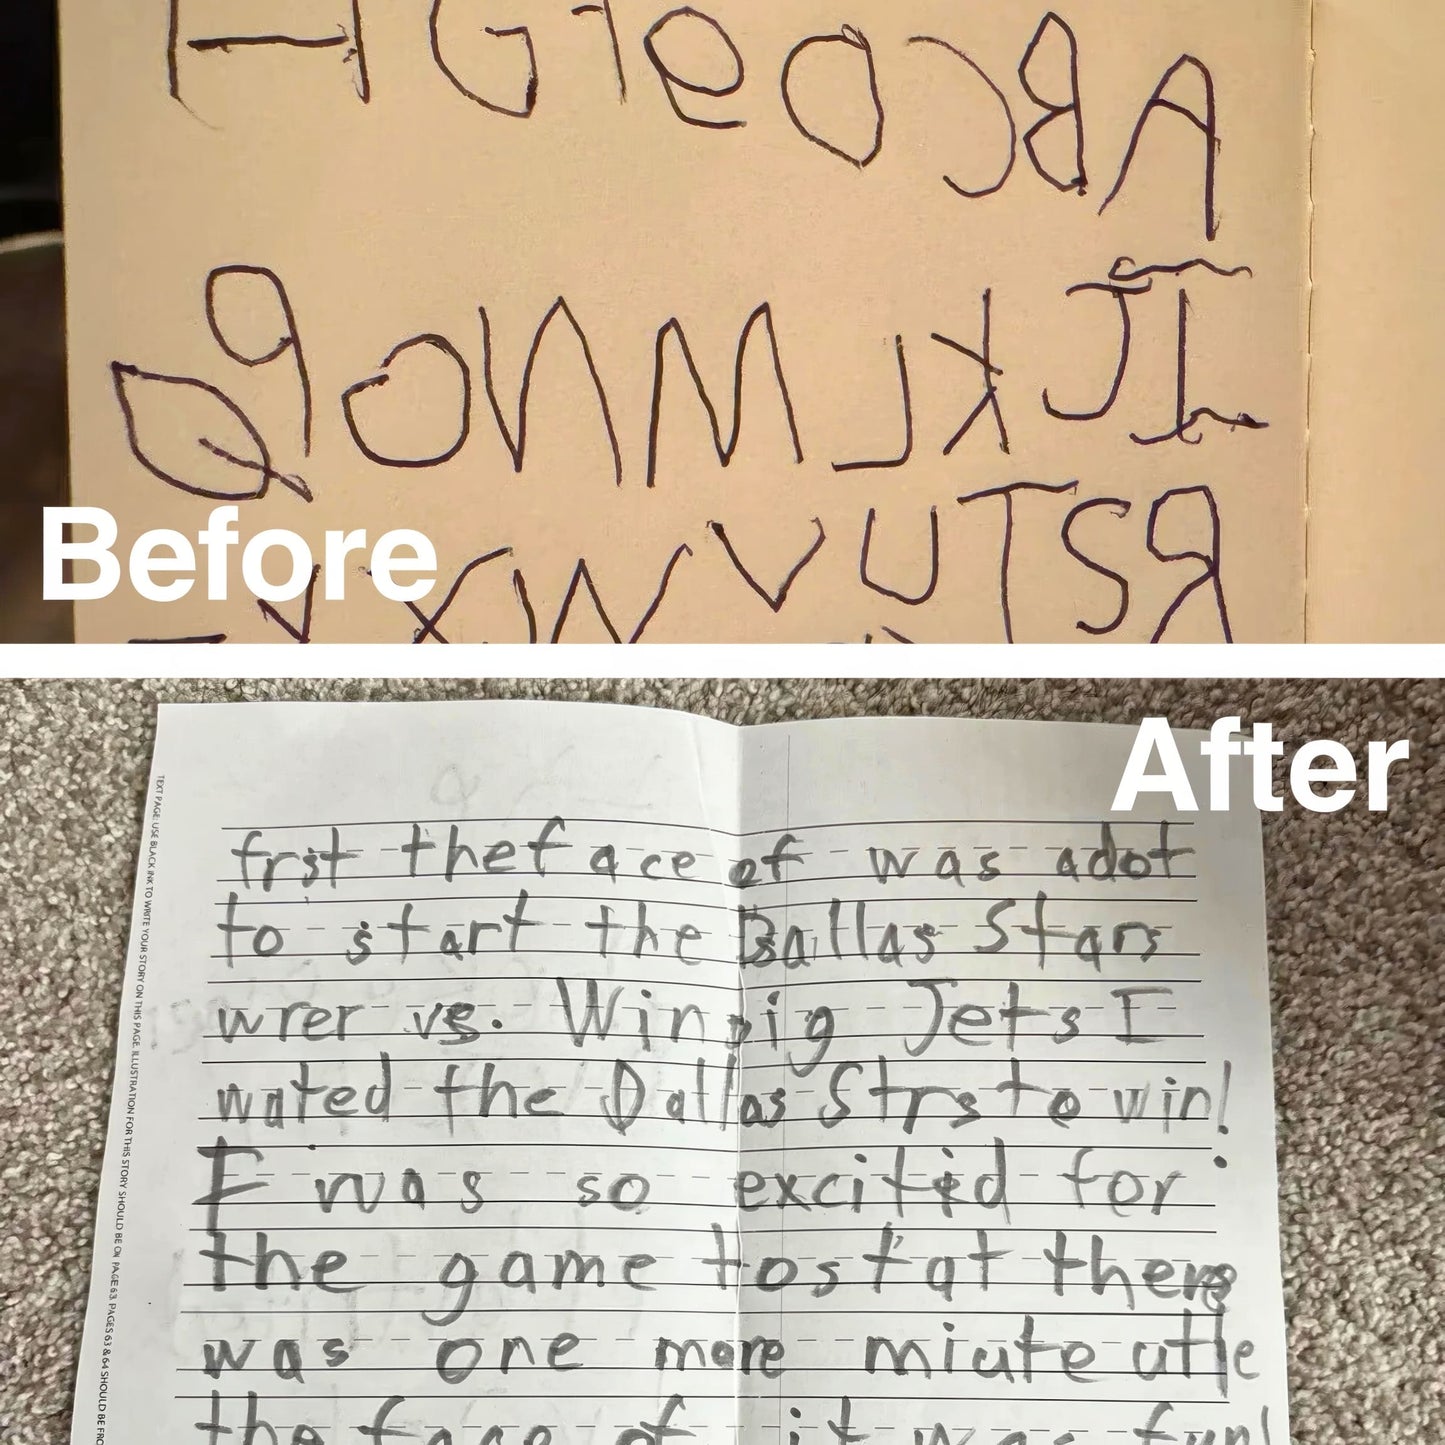 A B C D e f G H
I J K L M N O P Q
R S T U V W X Y
Before
After
TEXT PAGE: USE BLACK INK TO WRITE YOUR STORY ON THIS PAGE. ILLUSTRATION FOR THIS STORY SHOULD BE ON PAGE 63. PAGES 63 & 64 SHOULD BE FRO
frst theface of was adot
to start the Dallas Stars
wrer vs. Winpig Jets I
wated the Dallas Strs to win!
I was so excited for
the game tostat there
was one more miute utle
the face of it was fun!